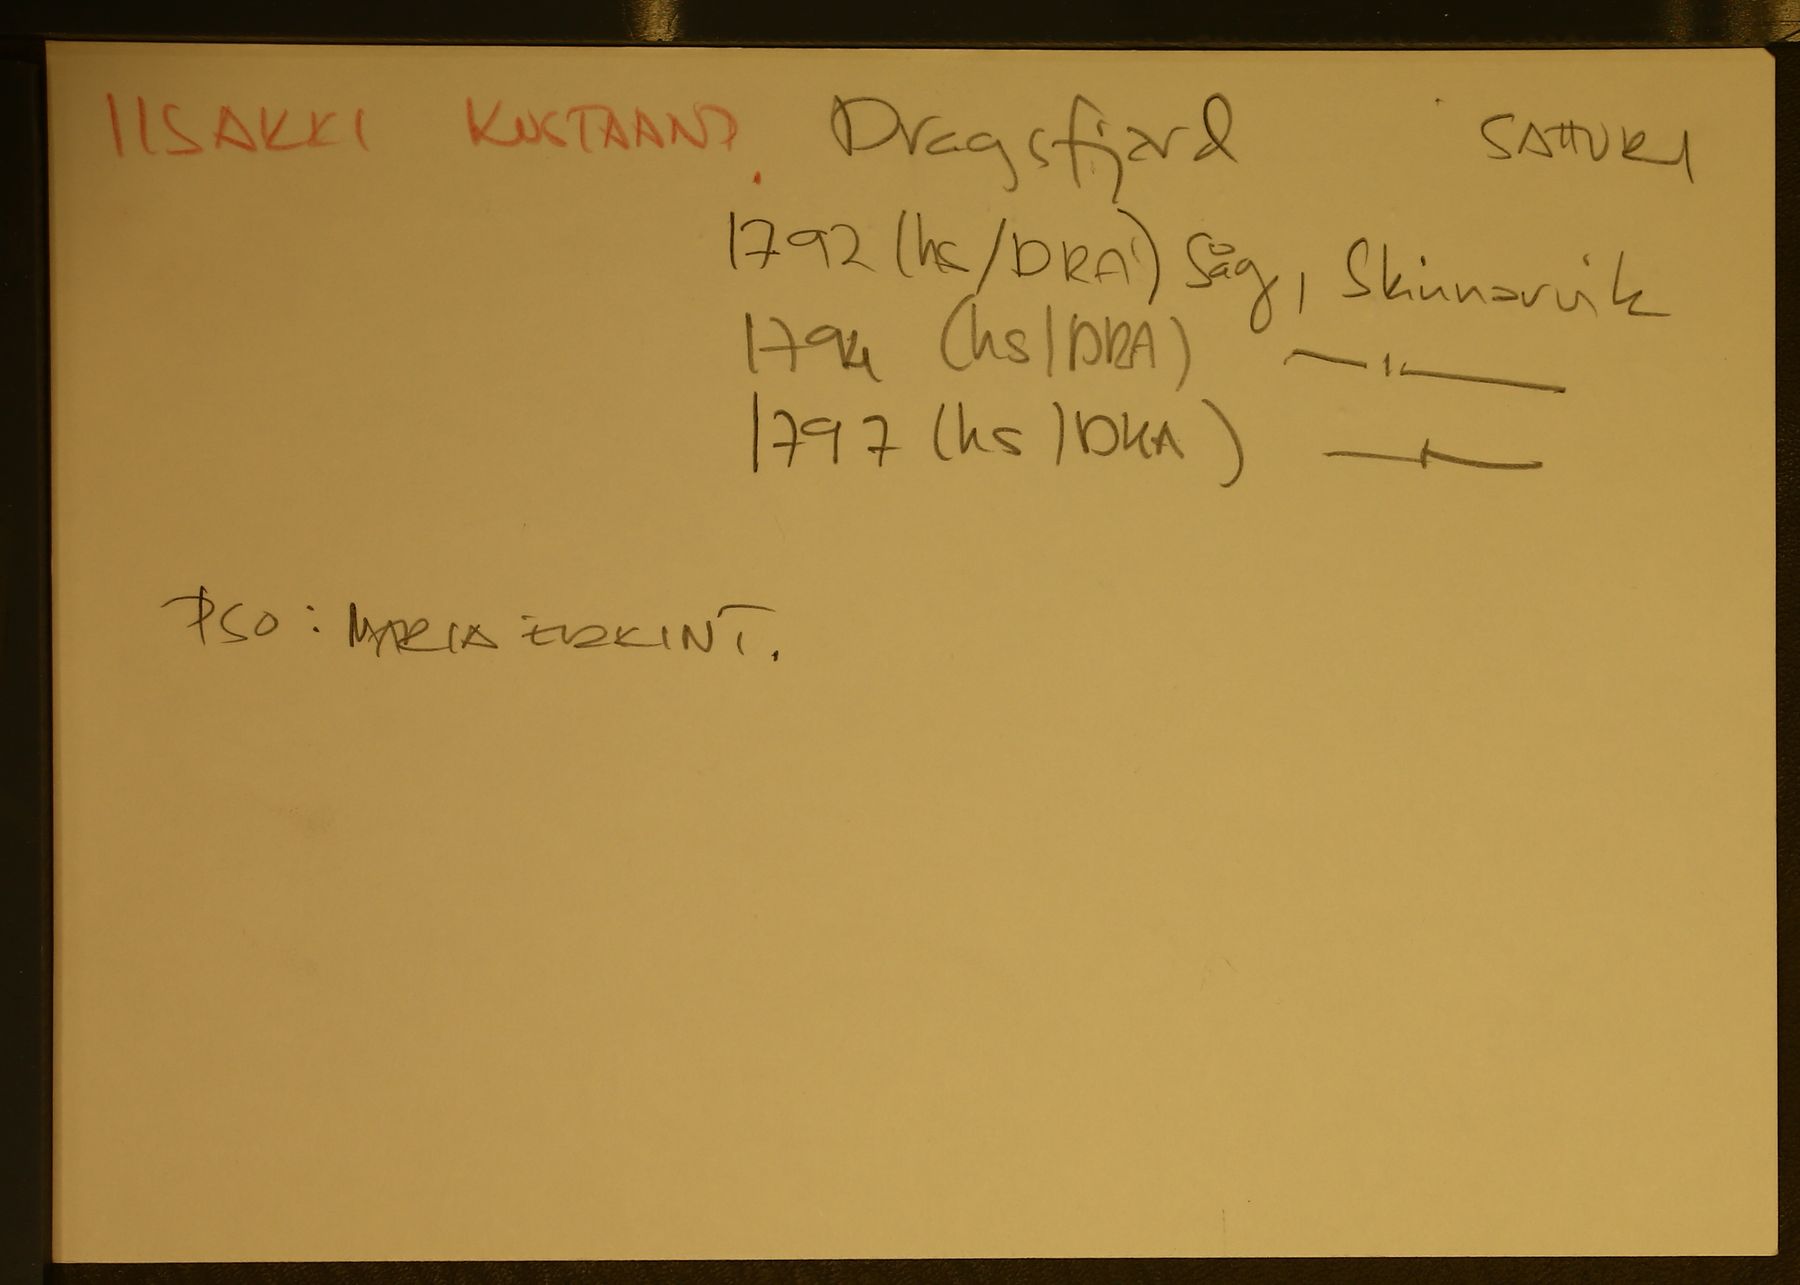 IISAKKI KUSTAANP. Dragsfjärd SAHURI
1792 (hs/DRA) Såg, Skinnarvik
1794 (hs/DRA) —"—
1797 (hs/DRA) —"—
PSO: MARIA ERKINT.